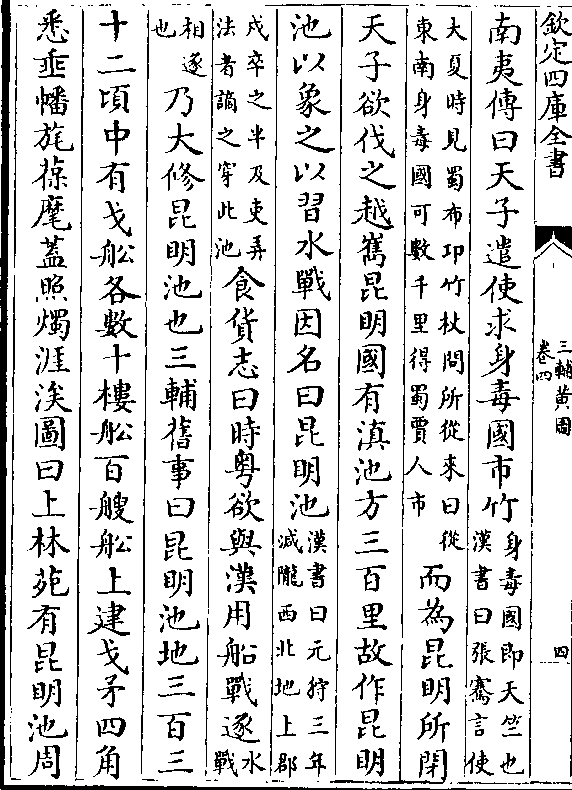 欽定四庫全書
三輔黃圖
卷四
四
南夷傳曰天子遣使求身毒國市竹
身毒國即天竺也
漢書曰張騫言使
大夏時見蜀布卭竹杖問所從來曰從
東南身毒國可數千里得蜀賈人市
而為昆明所閉
天子欲伐之越嶲昆明國有滇池方三百里故作昆明
池以象之以習水戰因名曰昆明池
漢書曰元狩三年
減隴西北地上郡
戍卒之半及吏弄
法者謫之穿此池
食貨志曰時粤欲與漢用船戰逐
水
戰
相逐
也
乃大修昆明池也三輔舊事曰昆明池地三百三
十二頃中有戈舩各數十樓舩百艘舩上建戈矛四角
悉垂幡旄葆麾蓋照燭涯涘圖曰上林苑有昆明池周